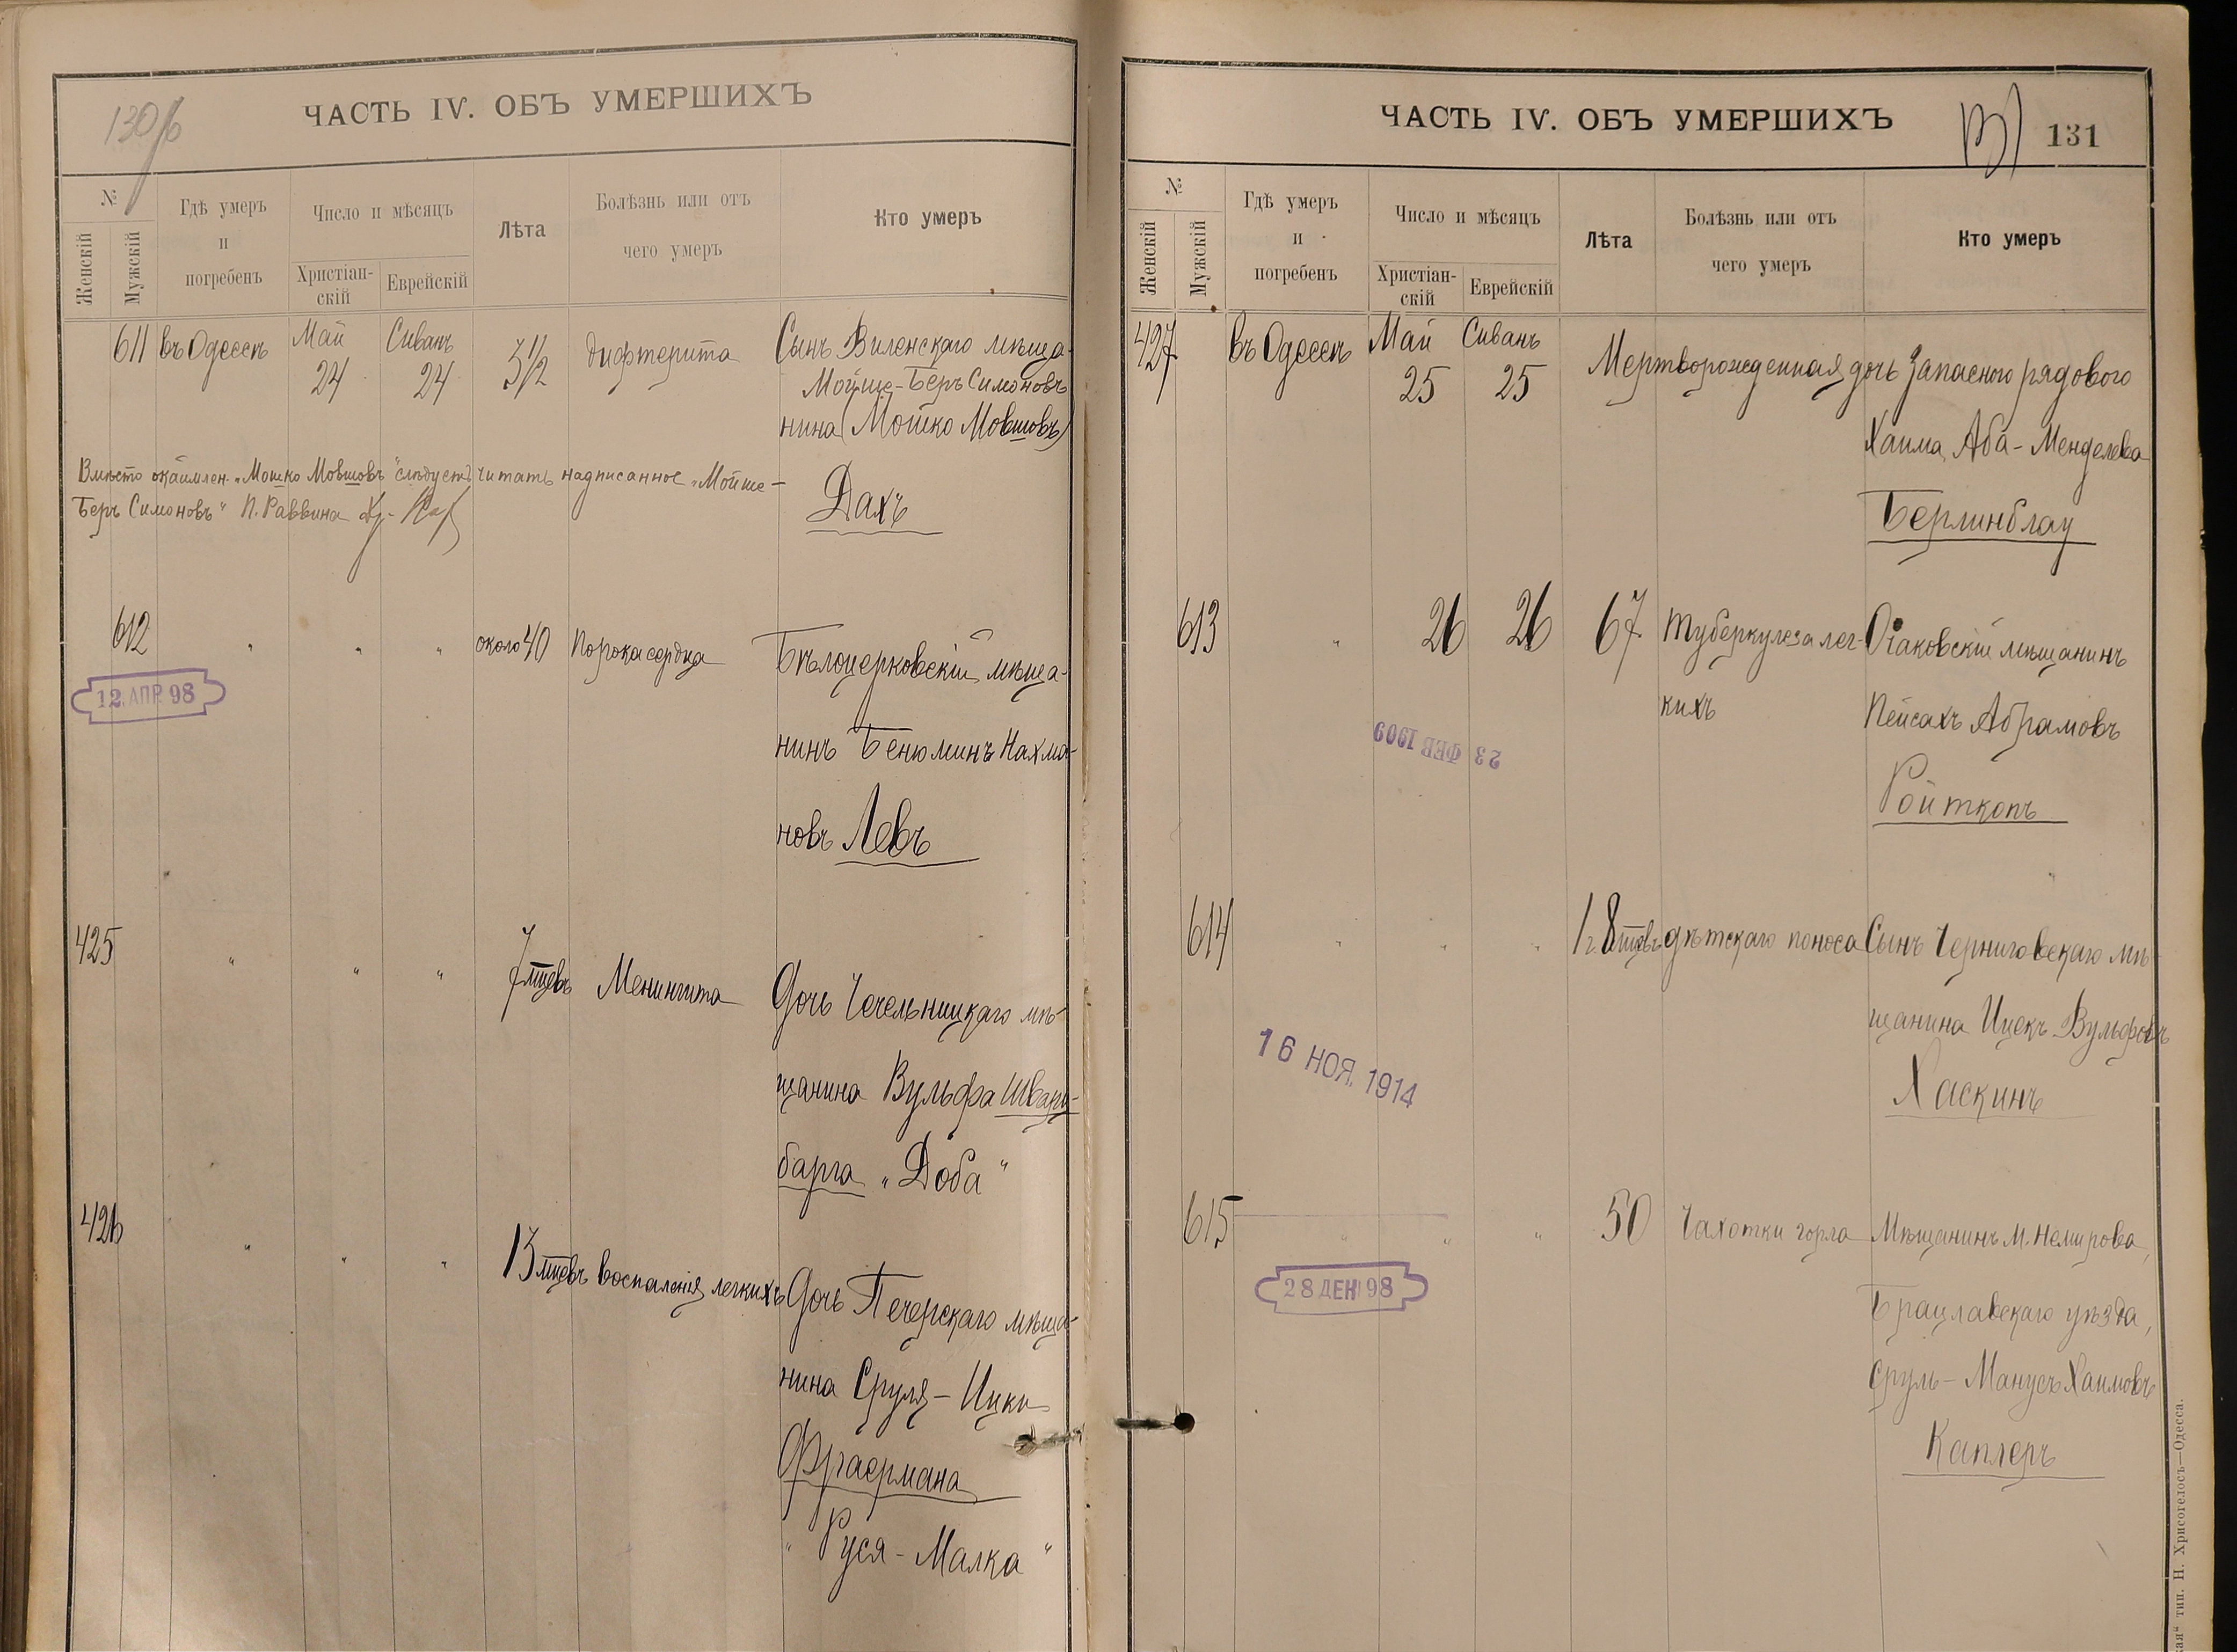 130/б
ЧАСТЬ IV. ОБЪ УМЕРШИХЪ
№
Женскій
Мужскій
Гдѣ умеръ
и
погребенъ
Число и мѣсяцъ
Христіан-
скій
Еврейскій
Лѣта
Болѣзнь или отъ
чего умеръ
Кто умеръ
611 въ Одессѣ Май Сиванъ 3½ дифтерита Сынъ Виленскаго мѣща-
24 24 Мойше-Беръ Симоновъ
нина (Мошко Мовшовъ)
Вмѣсто окаймлен. „Мошко Мовшовъ" слѣдуетъ читать надписанное „Мойше-
Беръ Симоновъ" П. Раввина
Дахъ
612 " " " около 40 Порока сердца Бѣлоцерковскій мѣща-
12 АПР 98
нинъ Бенюминъ Нахма-
новъ Левъ
425 " " " 7 мцевъ Менингита Дочь Чечельницкаго мѣ-
щанина Вульфа Шварц-
барга „Доба"
426 " " " 13 мцевъ воспаленія легкихъ Дочь Печерскаго мѣща-
нина Сруля-Ицки
Фраермана
" Руся-Малка "
ЧАСТЬ IV. ОБЪ УМЕРШИХЪ
131
№
Женскій
Мужскій
Гдѣ умеръ
и
погребенъ
Число и мѣсяцъ
Христіан-
скій
Еврейскій
Лѣта
Болѣзнь или отъ
чего умеръ
Кто умеръ
427 въ Одессѣ Май Сиванъ Мертворожденная дочь Запаснаго рядового
25 25
Хаима Аба-Менделева
Берлинблау
613 " 26 26 67 Туберкулеза лег- Очаковскій мѣщанинъ
кихъ Пейсахъ Абрамовъ
23 ФЕВ 1909
Ройткопъ
614 " " " 1 г. 8 мцевъ дѣтскаго поноса Сынъ Черниговскаго мѣ-
щанина Ицекъ Вульфовъ
16 НОЯ. 1914
Хаскинъ
615 " " " 50 Чахотки горла Мѣщанинъ М. Немирова,
28 ДЕН 98
Брацлавскаго уѣзда,
Сруль-Манусъ Хаимовъ
Каплеръ
тип. Н. Хрисогелосъ—Одесса.